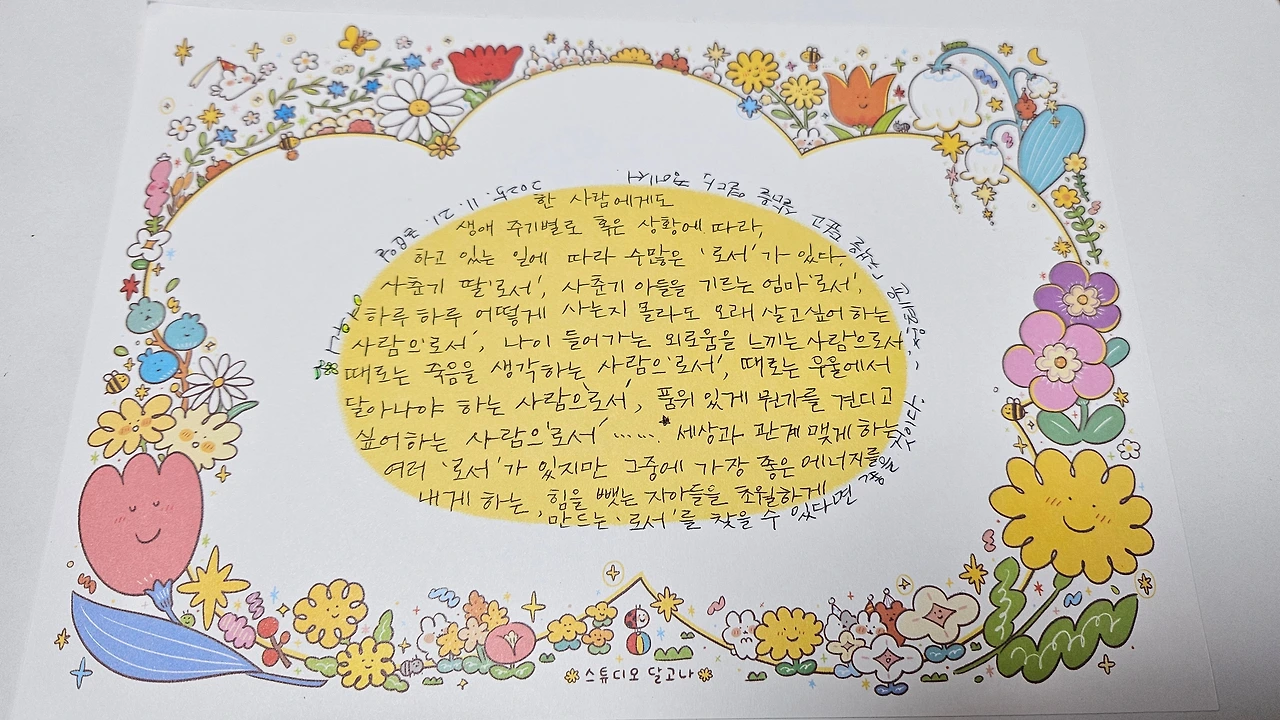 한 사람에게도
생애 주기별로 혹은 상황에 따라,
하고 있는 일에 따라 수많은 '로서'가 있다.
사춘기 딸'로서', 사춘기 아들을 기르는 엄마'로서',
하루 하루 어떻게 사는지 몰라도 오래 살고싶어 하는
사람으'로서', 나이 들어가는 외로움을 느끼는 사람으'로서',
때로는 죽음을 생각하는 사람으'로서', 때로는 우울에서
달아나야 하는 사람으로서', 품위 있게 뭔가를 견디고
싶어하는 사람으'로서' ······ 세상과 관계 맺게 하는
여러 '로서'가 있지만 그중에 가장 좋은 에너지를
내게 하는, 힘을 뺏는 자아들을 초월하게
만드는 '로서'를 찾을 수 있다면
2025. 11. 21.
스튜디오 달고나